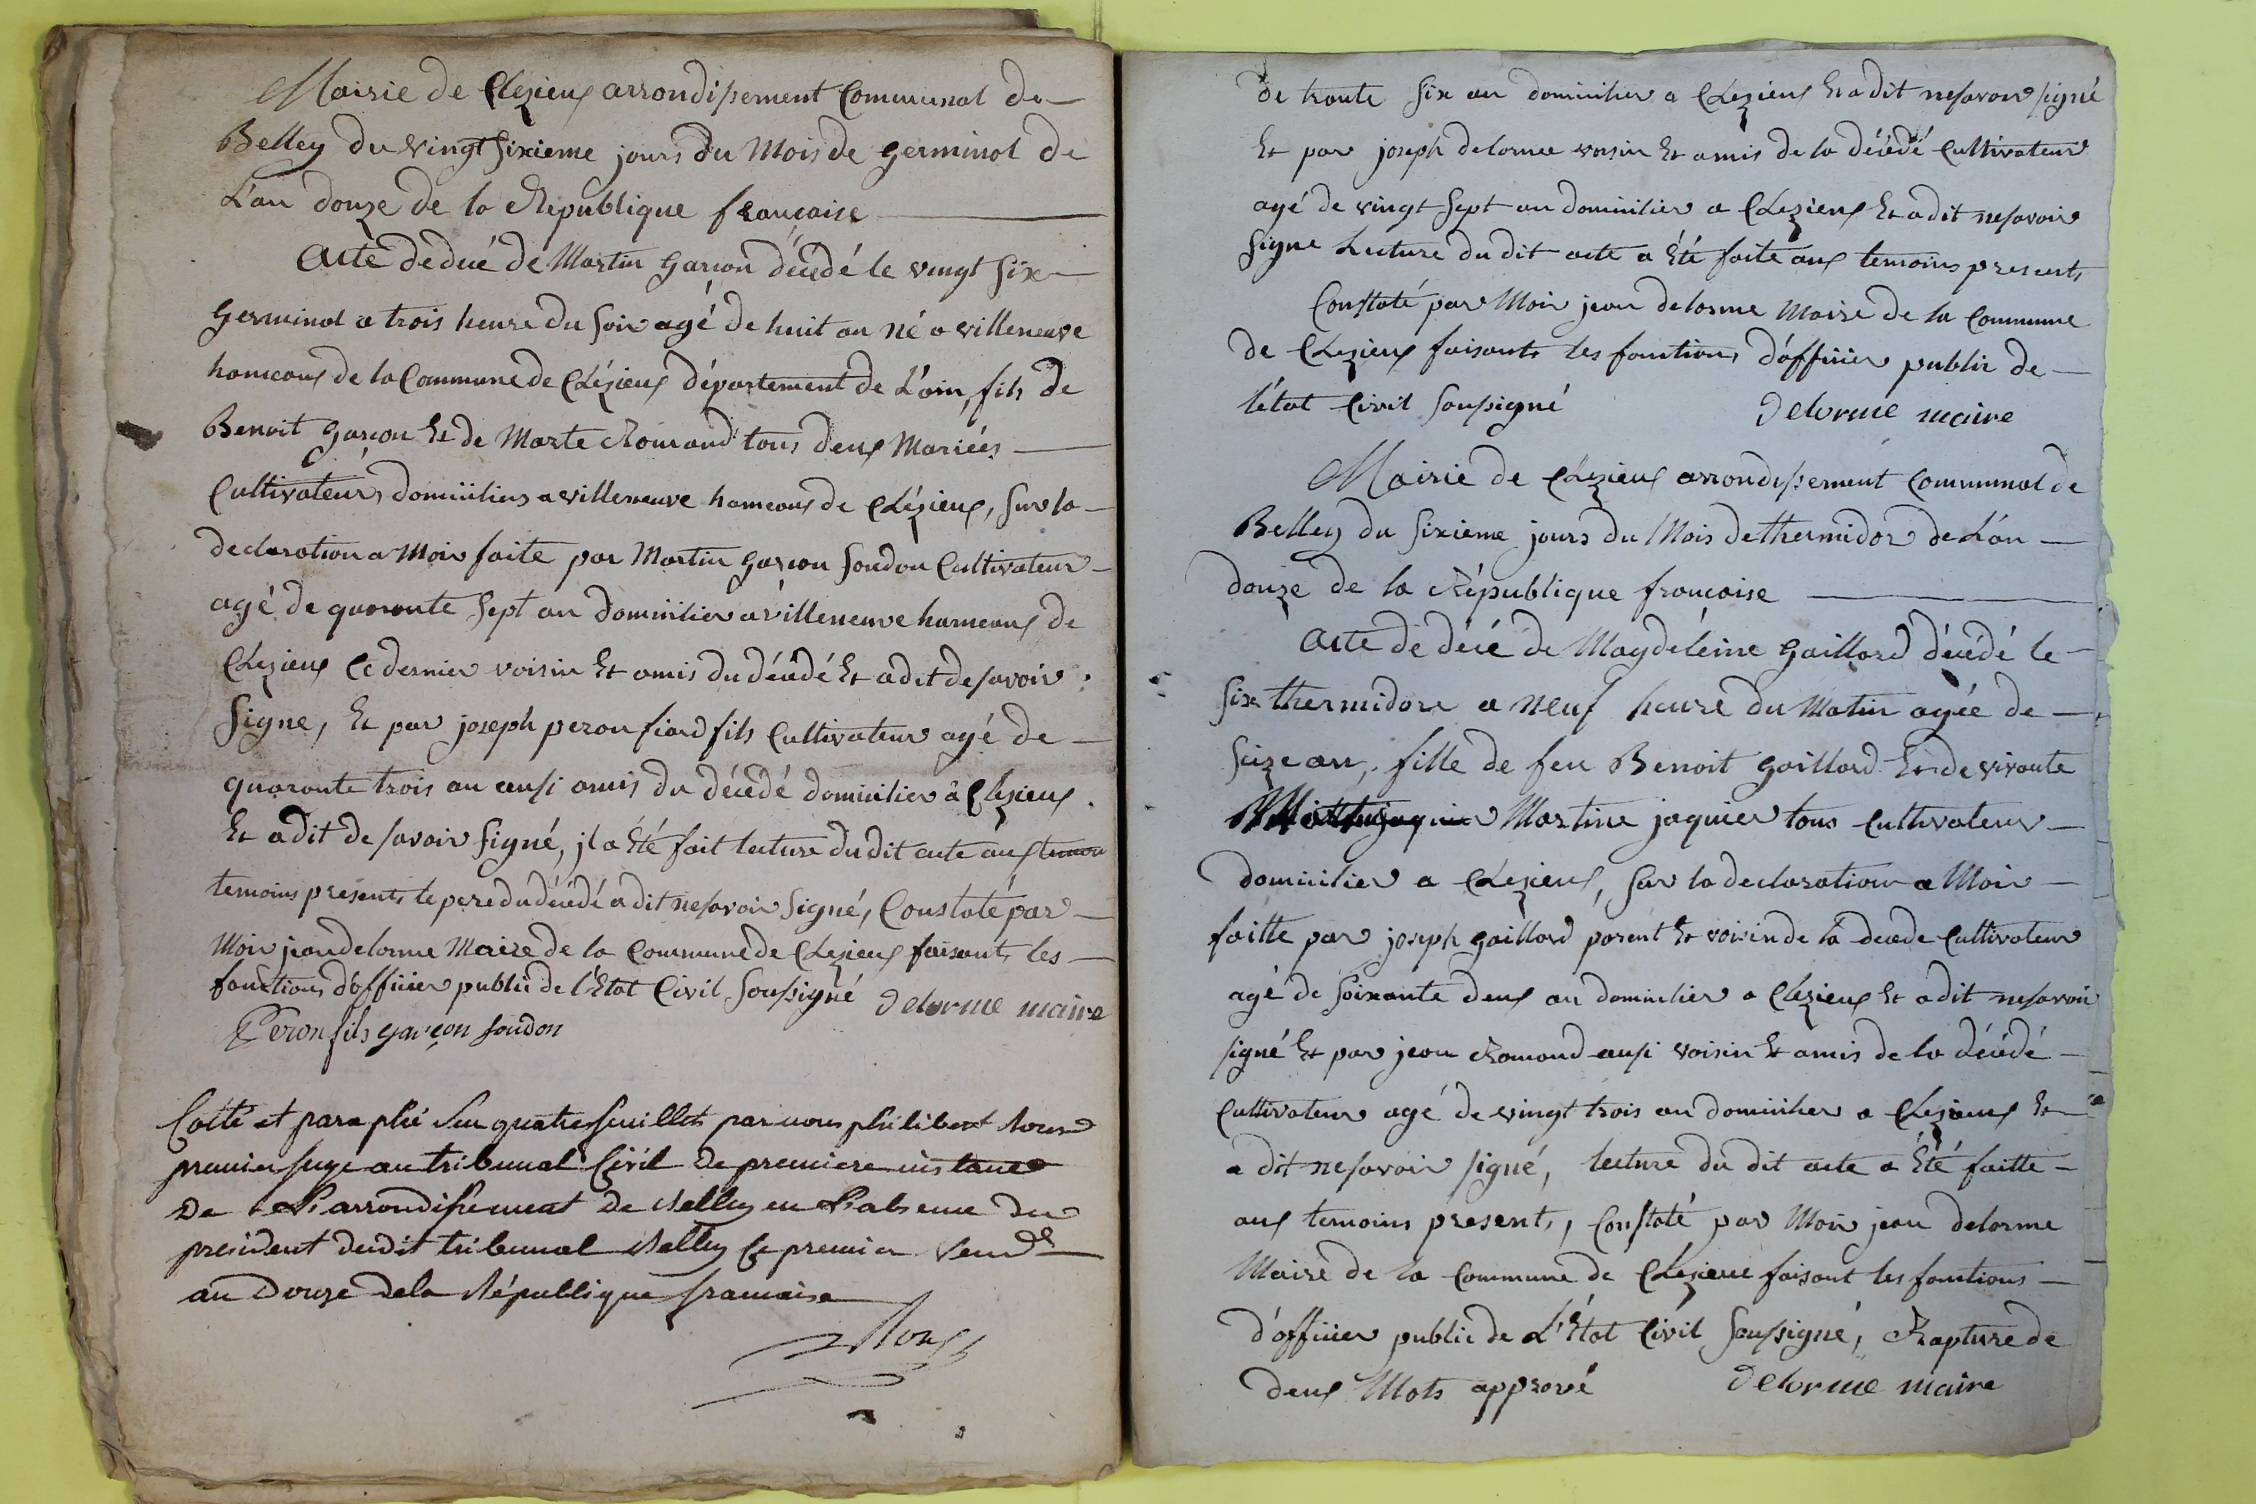 Mairie de Clezieux arrondissement Communal de
Belley du vingt sixieme jours du Mois de Germinal de
L'an douze de la République française
Acte de decé de Martin Garçon décédé le vingt six
Germinal a trois heure du soir agé de huit an né a villeneuve
hameaux de la Commune de Clézieux département de L'ain, fils de
Benoit Garçon Et de Marte Romand tous deux Mariées
Cultivateurs domicilies a villeneuve hameaux de Clézieux, sur la
declaration a Moi faite par Martin Garçon soudon Cultivateur
agé de quarante sept an domicilier a villeneuve hameaux de
Clezieux Ce dernier voisin Et amis du décédé Et a dit de savoir
signe, Et par joseph peron fiard fils Cultivateur agé de
quarante trois an ausi amis du décédé domicilier a Clezieux
Et a dit de savoir signé, jl a Été fait lecture du dit acte aux temoin
temoins presents le pere du décédé a dit ne savoir signé, Constaté par
Moi jean delorme Maire de la Commune de Clezieux faisants les
fonctions d'officier public de l'Etat Civil soussigné delorme maire
Peron fils garçon soudon
Cotté et paraphé sur quatre feuillets par nous philibert Roux
premier juge au tribunal Civil de premiere instance
De L'arrondissement de Belley en L'absence du
president dudit tribunal Belley le premier vend.re
an Douze de la République française
Roux
de trante six an domicilier a Clezieux Et a dit ne savoir signé
Et par joseph delorme voisin Et amis de la décédé Cultivateur
agé de vingt sept an domicilier a Clezieux Et a dit ne savoir
signe Lecture du dit acte a Été faite aux temoins presents
Constaté par Moi jean delorme Maire de la Commune
de Clezieux faisants les fonctions d'officier public de
l'état Civil soussigné delorme maire
Mairie de Clezieux arrondissement Communal de
Belley du sixieme jours du Mois de thermidor de L'an
douze de la République française
Acte de décé de Magdeleine Gaillard décédé le
six thermidore a neuf heure du Matin agée de
seize an, fille de feu Benoit Gaillard Et de vivante
Martine jaquier tous Cultivateur
domicilier a Clezieux, sur la declaration a Moi
faitte par joseph Gaillard parent Et voisin de la decede Cultivateur
agé de soixante deux an domicilier a Clezieux Et a dit ne savoir
signé Et par jean Romand ausi voisin Et amis de la décédé
Cultivateur agé de vingt trois an domicilier a Clezieux Et
a dit ne savoir signé, lecture du dit acte a Été faitte
aux temoins presents, Constaté par Moi jean delorme
Maire de la Commune de Clezieux faisant les fonctions
d'officier public de L'État Civil soussigné, Rapture de
deux Mots apprové delorme maire